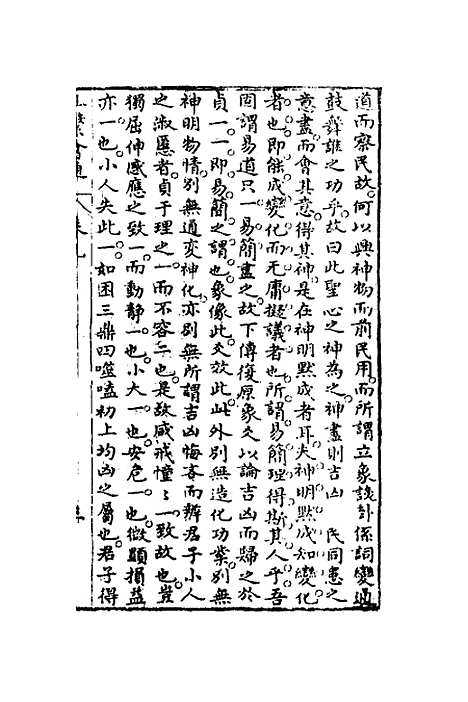 道而察民故何以興神物而前民用而所謂立象設卦係詞變通
鼓舞誰之功乎故曰此聖心之神為之神盡則吉凶 民同患之
意盡而會其意得其神是在神明默成者耳夫神明默成知變化
者也即能成變化而无庸擬議者也所謂易簡理得斯其人乎吾
固謂易道只一易簡盡之故下傳復原象爻以論吉凶而歸之於
貞一一即易簡之謂也象像此爻效此此外別無造化功業別無
神明物情別無通變神化亦別無所謂吉凶悔吝而辨君子小人
之淑慝者貞于理之一而不容二也是故咸戒憧憧一致故也豈
獨屈伸感應之致一而動靜一也小大一也安危一也微顯損益
亦一也小人失此一如困三鼎四噬嗑初上均凶之屬也君子得